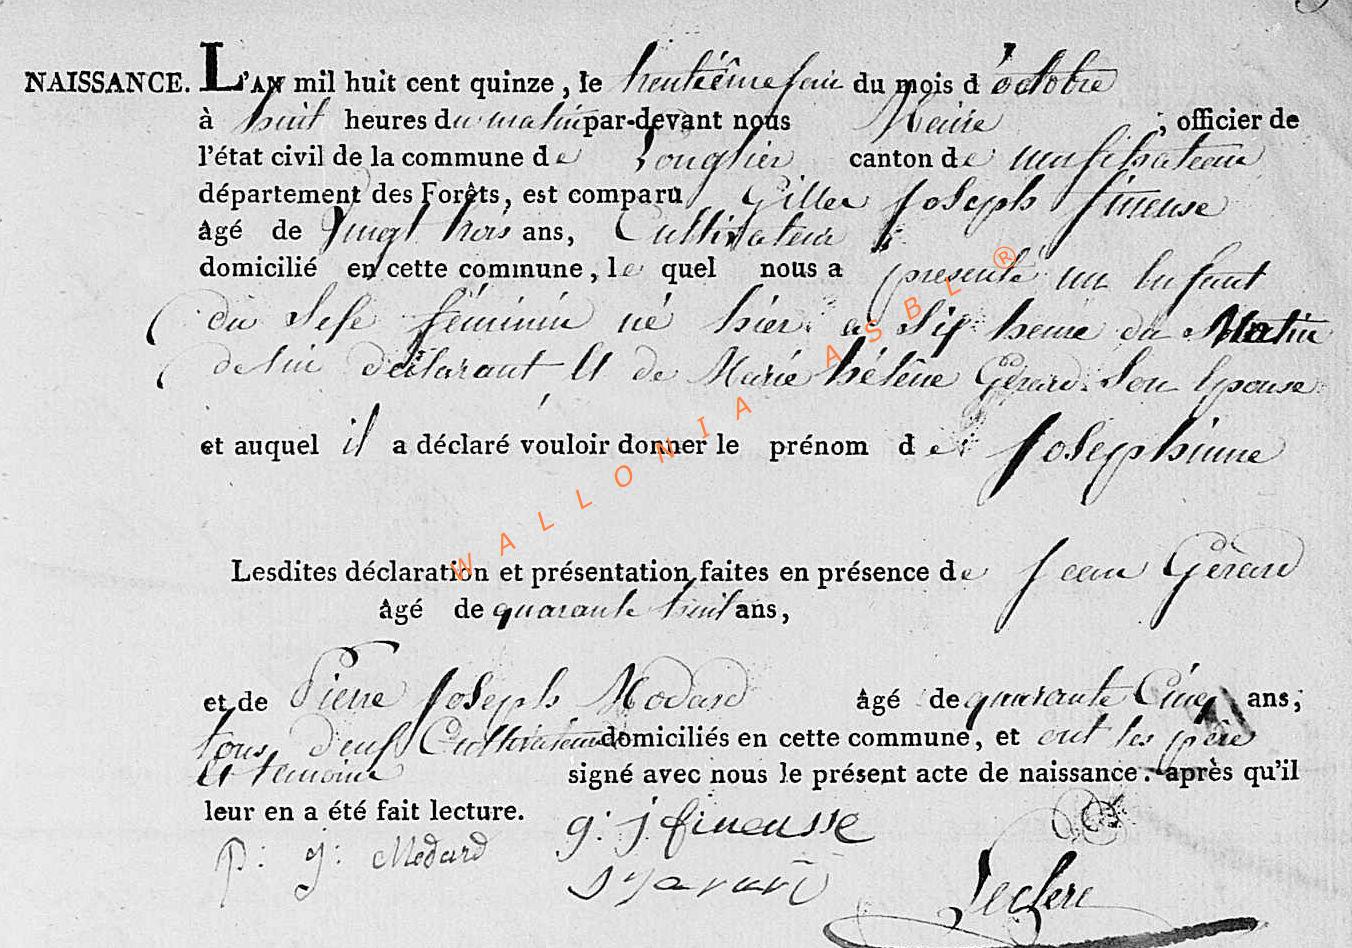 NAISSANCE. L'AN mil huit cent quinze, le trentième jour du mois d'octobre
à huit heures du matin par-devant nous Maire, officier de
l'état civil de la commune de Longlier canton de neufchateau
département des Forêts, est comparu Gilles Joseph fineuse
âgé de vingt trois ans, Cultivateur
domicilié en cette commune, le quel nous a presenté un Enfant
du Sexe féminin né hier a Six heure du Matin
de lui déclarant Et de Marie hélène Gérard Son Epouse
et auquel il a déclaré vouloir donner le prénom de Josephinne
Lesdites déclaration et présentation faites en présence de Jean Gérard
âgé de quarante huit ans,
et de Pierre Joseph Modard âgé de quarante Cinq ans,
tous deux Cultivateurs domiciliés en cette commune, et ont les père
Et temoins signé avec nous le présent acte de naissance. après qu'il
leur en a été fait lecture. g: j fineusse
p: j: Medard
Leclere
WALLONIA ASBL ®